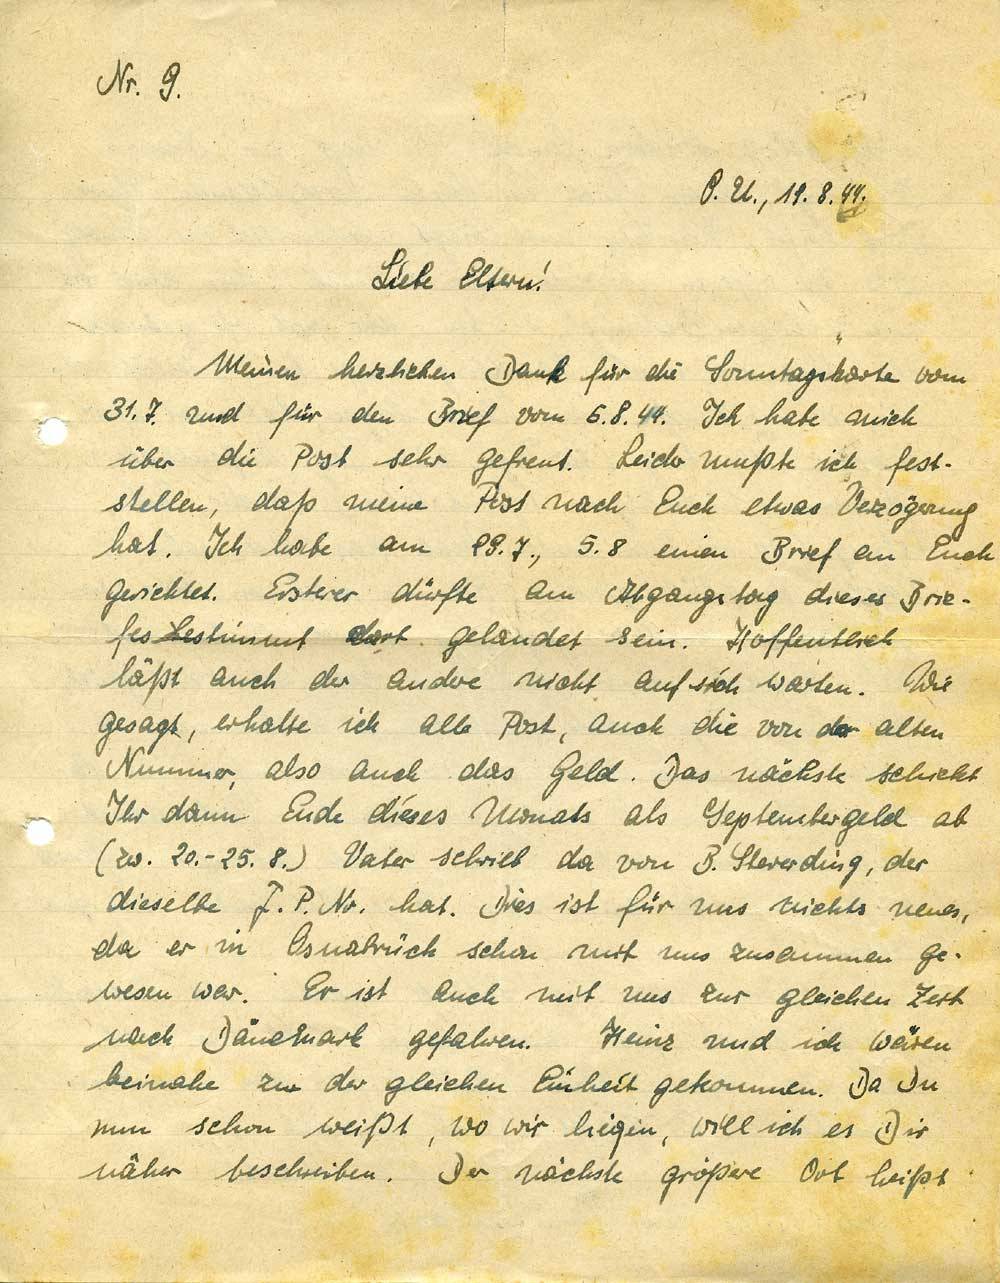 Nr. 9.
O. U., 19. 8. 44.
Liebe Eltern!
Meinen herzlichen Dank für die Sonntagskarte vom
31.7. und für den Brief vom 6.8.44. Ich habe mich
über die Post sehr gefreut. Leider mußte ich fest-
stellen, daß meine Post nach Euch etwas Verzögerung
hat. Ich habe am 29.7., 5.8 einen Brief an Euch
gerichtet. Ersterer dürfte am Abgangstag dieses Brie-
fes bestimmt dort gelandet sein. Hoffentlich
läßt auch der andere nicht auf sich warten. Wie
gesagt, erhalte ich alle Post, auch die von der alten
Nummer, also auch das Geld. Das nächste schickt
Ihr dann Ende dieses Monats als Septembergeld ab
(zw. 20.-25. 8.) Vater schrieb da von B. Steverding, der
dieselbe F. P. Nr. hat. Dies ist für uns nichts neues,
da er in Osnabrück schon mit uns zusammen ge-
wesen war. Er ist auch mit uns zur gleichen Zeit
nach Dänemark gefahren. Heinz und ich wären
beinahe zu der gleichen Einheit gekommen. Da Du
nun schon weißt, wo wir liegen, will ich es Dir
näher beschreiben. Der nächste größere Ort heißt